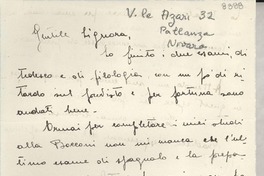 8588
V. le Azari 32
Pallanza
Novara
Gentile Signora,
Ho finito i due esami, di
tedesco e di filologia con un po' di ri-
tardo sul previsto e per fortuna sono
andati bene.
Ormai per completare i miei studi
alla Bocconi non mi manca che l'ul-
timo esame di spagnolo e la prepa-